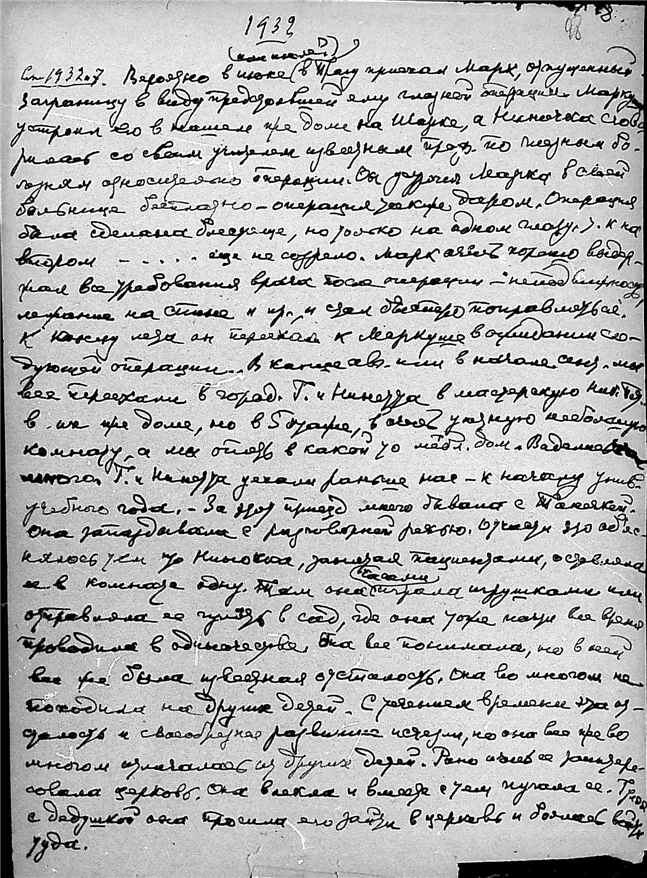 1932
98
(или июле?)
См 1932.7. Вероятно в июне в Прагу приехал Марк, отпущенный
заграницу в виду предстоявшей ему глазной операции. Маркуша
устроил его в нашем же доме на Шарке, а Ниночка сгово
рилась со своим учителем известным проф. по глазным бо-
лезням относительно операции. Он устроил Марка в своей
больнице бесплатно - операция также даром. Операция
была сделана блестяще, но только на одном глазу, т. к на
втором - . - . - . . еще не созрело. Марк очень хорошо выдер-
жал все требования врача после операции - неподвижность,
лежание на спине и пр. и стал быстро поправляться.
К концу лета он переехал к Маркуше в ожидании сле-
дующей операции. В конце авг. или в начале сент. мы
все переехали в город. Г. и Нинетта в мастерскую
в . их же доме, но в 5 этаже, в очень уютную небольшую
комнату, а мы опять в какой то мебл. дом. Виделись
много. Г. и Нинетта уехали раньше нас - к началу унив.
учебного года. - За этот приезд много бывала с
она запаздывала с разговорной речью. Отчасти это объяс-
нялось тем что Ниночка, занятая пациентами, оставляла
ее в комнате одну. Там она часами играла игрушками или
отправляла ее гулять в сад, где она тоже почти все время
проводила в одиночестве. Она все понимала, но в ней
все же была известная отсталость. Она во многом не
походила на других детей. С течением времени эта от-
сталость и своеобразное развитие исчезли, но она все же во
многом отличалась от других детей. Рано очень ее заинтере-
совала церковь. Она влекла и вместе с тем пугала ее. Гуляя
с дедушкой она просила его зайти в церковь и боялась войти
туда.